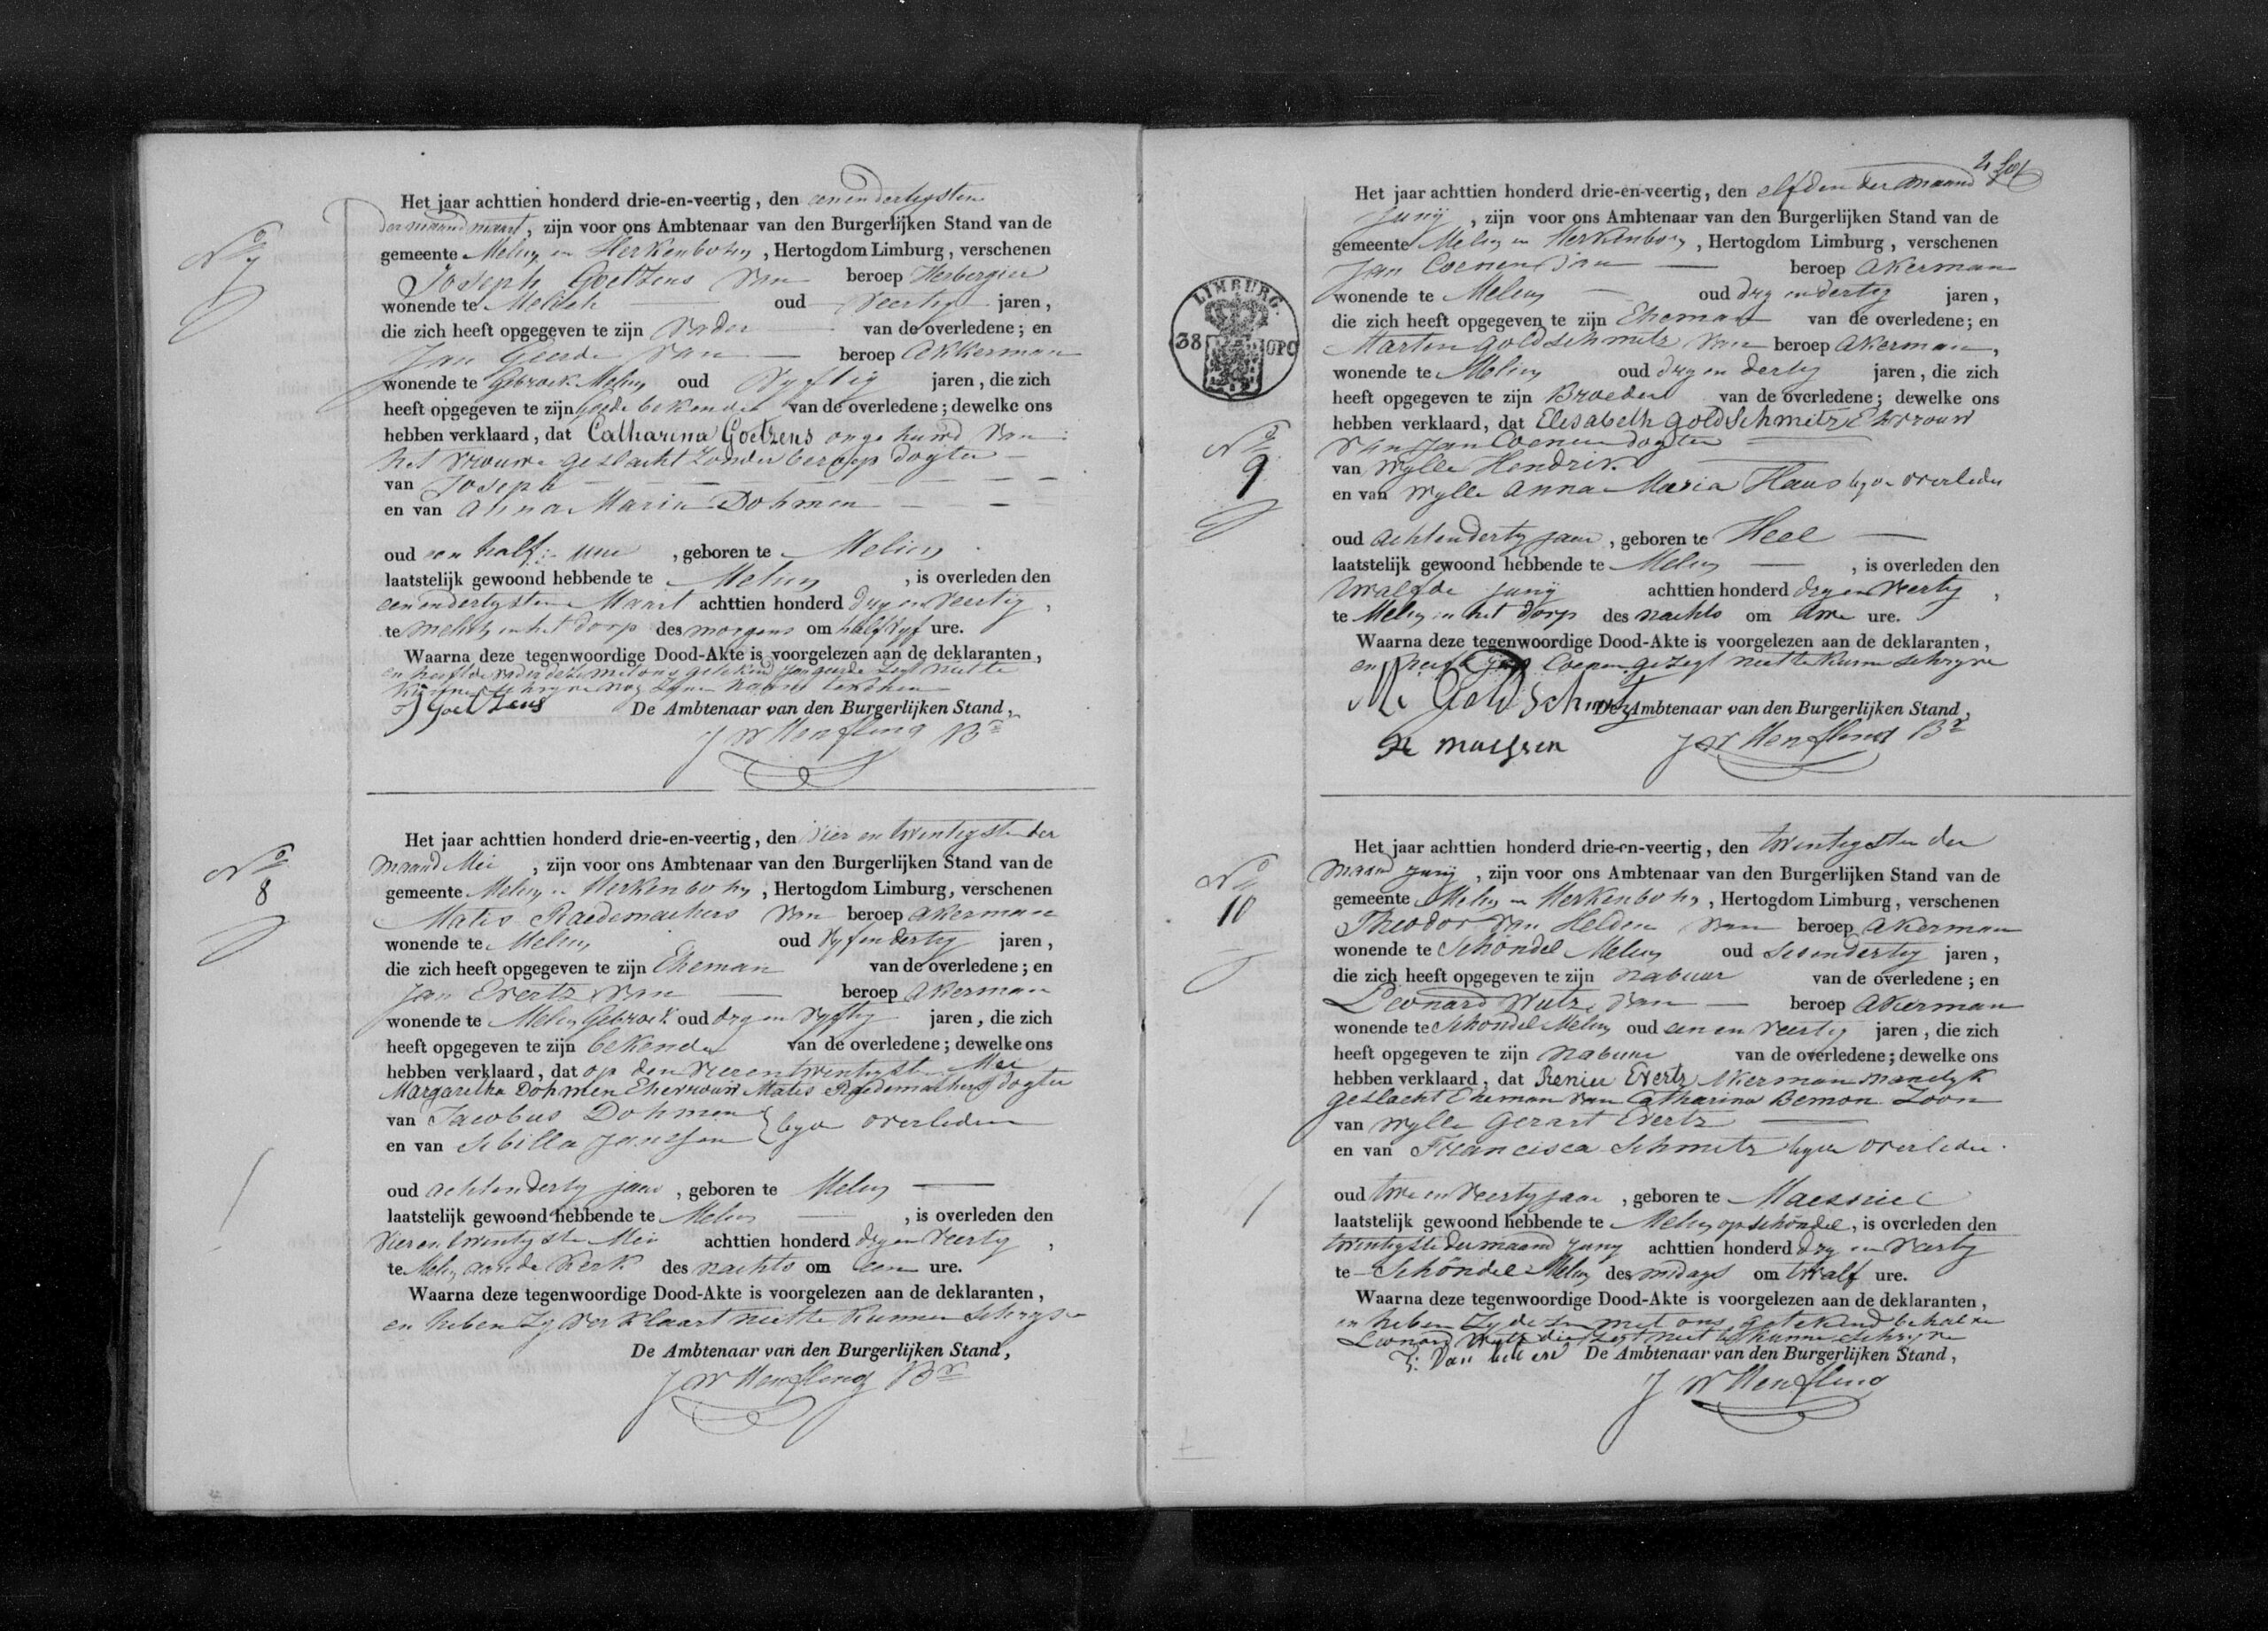 No
7
Het jaar achttien honderd drie-en-veertig, den eenendertigsten
der maand maart, zijn voor ons Ambtenaar van den Burgerlijken Stand van de
gemeente Melick en Herkenbosch, Hertogdom Limburg, verschenen
Joseph Goetzens van beroep Herbergier
wonende te oud veertig jaren,
die zich heeft opgegeven te zijn vader van de overledene; en
Jan Geerde van — beroep Akkerman
wonende te Gebroek Melick oud vyftig jaren, die zich
heeft opgegeven te zijn goede bekende van de overledene; dewelke ons
hebben verklaard, dat Catharina Goetzens ongehuwd van
het vrouwe geslacht zonder beroep dogter —
van Joseph — — — —
en van Anna Maria Dohmen — — —
oud een half uur, geboren te Melick
laatstelijk gewoond hebbende te Melick, is overleden den
eenendertigsten Maart achttien honderd dry en veertig,
te Melick in het dorp des morgens om half vyf ure.
Waarna deze tegenwoordige Dood-Akte is voorgelezen aan de deklaranten,
en heeft de vader deze met ons getekend Jan geerde zegt niet te
kunnen schryve nog zynen naam tekenen
J Goetzens De Ambtenaar van den Burgerlijken Stand,
J W Henfling Br
No
8
Het jaar achttien honderd drie-en-veertig, den vier en twentigsten der
maand Mei, zijn voor ons Ambtenaar van den Burgerlijken Stand van de
gemeente Melick en Herkenbosch, Hertogdom Limburg, verschenen
Matis Raedemaekers van beroep akerman
wonende te Melick oud vyfendertig jaren,
die zich heeft opgegeven te zijn Eheman van de overledene; en
Jan Evertz van — beroep akerman
wonende te Melick Gebroek oud dry en vyftig jaren, die zich
heeft opgegeven te zijn bekende van de overledene; dewelke ons
hebben verklaard, dat op den vierentwentigsten Mei
Margaretha Dohmen Ehevrouw Matis Raedemaekers dogter
van Jacobus Dohmen
en van Sibilla Janssen } byde overleden
oud achtendertig jaar, geboren te Melick —
laatstelijk gewoond hebbende te Melick —, is overleden den
vieren twentigsten Mei achttien honderd dry en veertig,
te Melick aan de Kerk des nachts om een ure.
Waarna deze tegenwoordige Dood-Akte is voorgelezen aan de deklaranten,
en heben zy verklaart niet te kunnen schryve
De Ambtenaar van den Burgerlijken Stand,
J W Henfling Br
LIMBURG.
38
OPC
No
9
Het jaar achttien honderd drie-en-veertig, den elfden der maand
Junij, zijn voor ons Ambtenaar van den Burgerlijken Stand van de
gemeente Melick en Herkenbosch, Hertogdom Limburg, verschenen
Jan Coenen van — beroep Akerman
wonende te Melick — oud dry en dertig jaren,
die zich heeft opgegeven te zijn Eheman van de overledene; en
Marten Goldschmitz van beroep Akerman,
wonende te Melick oud dry en dertig jaren, die zich
heeft opgegeven te zijn Broeder van de overledene; dewelke ons
hebben verklaard, dat Elisabeth Goldschmitz Ehvrouw
van Jan Coenen dogter —
van wylle Hendrik
en van wylle Anna Maria Haus byde overleden
oud achtendertig jaar, geboren te Heel —
laatstelijk gewoond hebbende te Melick —, is overleden den
twalfde junij achttien honderd dry en veertig,
te Melick in het dorp des nachts om twe ure.
Waarna deze tegenwoordige Dood-Akte is voorgelezen aan de deklaranten,
en heeft Jan Coenen gezegt niet te kunnen schryve
M. Goldschmitz De Ambtenaar van den Burgerlijken Stand,
J W Henfling Br
No
10
Het jaar achttien honderd drie-en-veertig, den twentigsten der
maand junij, zijn voor ons Ambtenaar van den Burgerlijken Stand van de
gemeente Melick en Herkenbosch, Hertogdom Limburg, verschenen
Theodor van Helden van beroep Akerman
wonende te Schöndel Melick oud sesendertig jaren,
die zich heeft opgegeven te zijn nabuur van de overledene; en
Leonard Wutz van — beroep Akerman
wonende te Schöndel Melick oud een en veertig jaren, die zich
heeft opgegeven te zijn nabuur van de overledene; dewelke ons
hebben verklaard, dat Renier Evertz Akerman manelyk
geslacht Eheman van Catharina Bemon zoon
van wylle Gerart Evertz —
en van Francisca Schmitz byde overleden.
oud twe en veertig jaar, geboren te Maesniel
laatstelijk gewoond hebbende te Melick op schöndel, is overleden den
twentigste der maand Juny achttien honderd dry en veertig
te Schöndel Melick des midags om twalf ure.
Waarna deze tegenwoordige Dood-Akte is voorgelezen aan de deklaranten,
en heben zy deze met ons getekend behalve
Leonard Wutz die zegt niet te kunnen schryve
De Ambtenaar van den Burgerlijken Stand,
J W Henfling